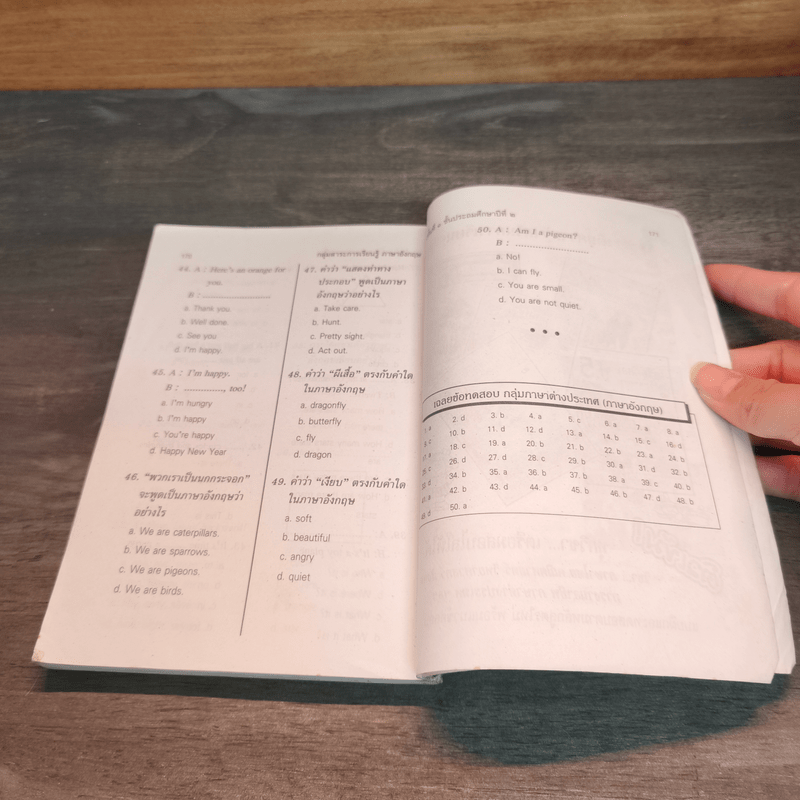 กลุ่มสาระการเรียนรู้ ภาษาอังกฤษ
44. A : Here's an orange for
you.
B : ......................
a. Thank you.
b. Well done.
c. See you
d. I'm happy.
45. A : I'm happy.
B : ............., too!
a. I"m hungry
b. I"m happy
c. You"re happy
d. Happy New Year
46. “พวกเราเป็นนกกระจอก”
จะพูดเป็นภาษาอังกฤษว่า
อย่างไร
a. We are caterpillars.
b. We are sparrows.
c. We are pigeons.
d. We are birds.
47. คำว่า “แสดงท่าทาง
ประกอบ” พูดเป็นภาษา
อังกฤษว่าอย่างไร
a. Take care.
b. Hunt.
c. Pretty sight.
d. Act out.
48. คำว่า “ผีเสื้อ” ตรงกับคำใด
ในภาษาอังกฤษ
a. dragonfly
b. butterfly
c. fly
d. dragon
49. คำว่า “เงียบ” ตรงกับคำใด
ในภาษาอังกฤษ
a. soft
b. beautiful
c. angry
d. quiet
ชั้นประถมศึกษาปีที่ ๒
50. A : Am I a pigeon?
B : ........................
a. No!
b. I can fly.
c. You are small.
d. You are not quiet.
• • •
เฉลยข้อทดสอบ กลุ่มภาษาต่างประเทศ (ภาษาอังกฤษ)
2. d 3. b 4. a 5. c 6. a 7. a 8. a
10. b 11. d 12. d 13. a 14. b 15. c 16. d
18. c 19. a 20. b 21. b 22. b 23. a 24. b
26. d 27. d 28. c 29. b 30. a 31. d 32. b
34. b 35. a 36. b 37. b 38. a 39. c 40. b
42. b 43. d 44. a 45. b 46. b 47. d 48. b
49. d 50. a